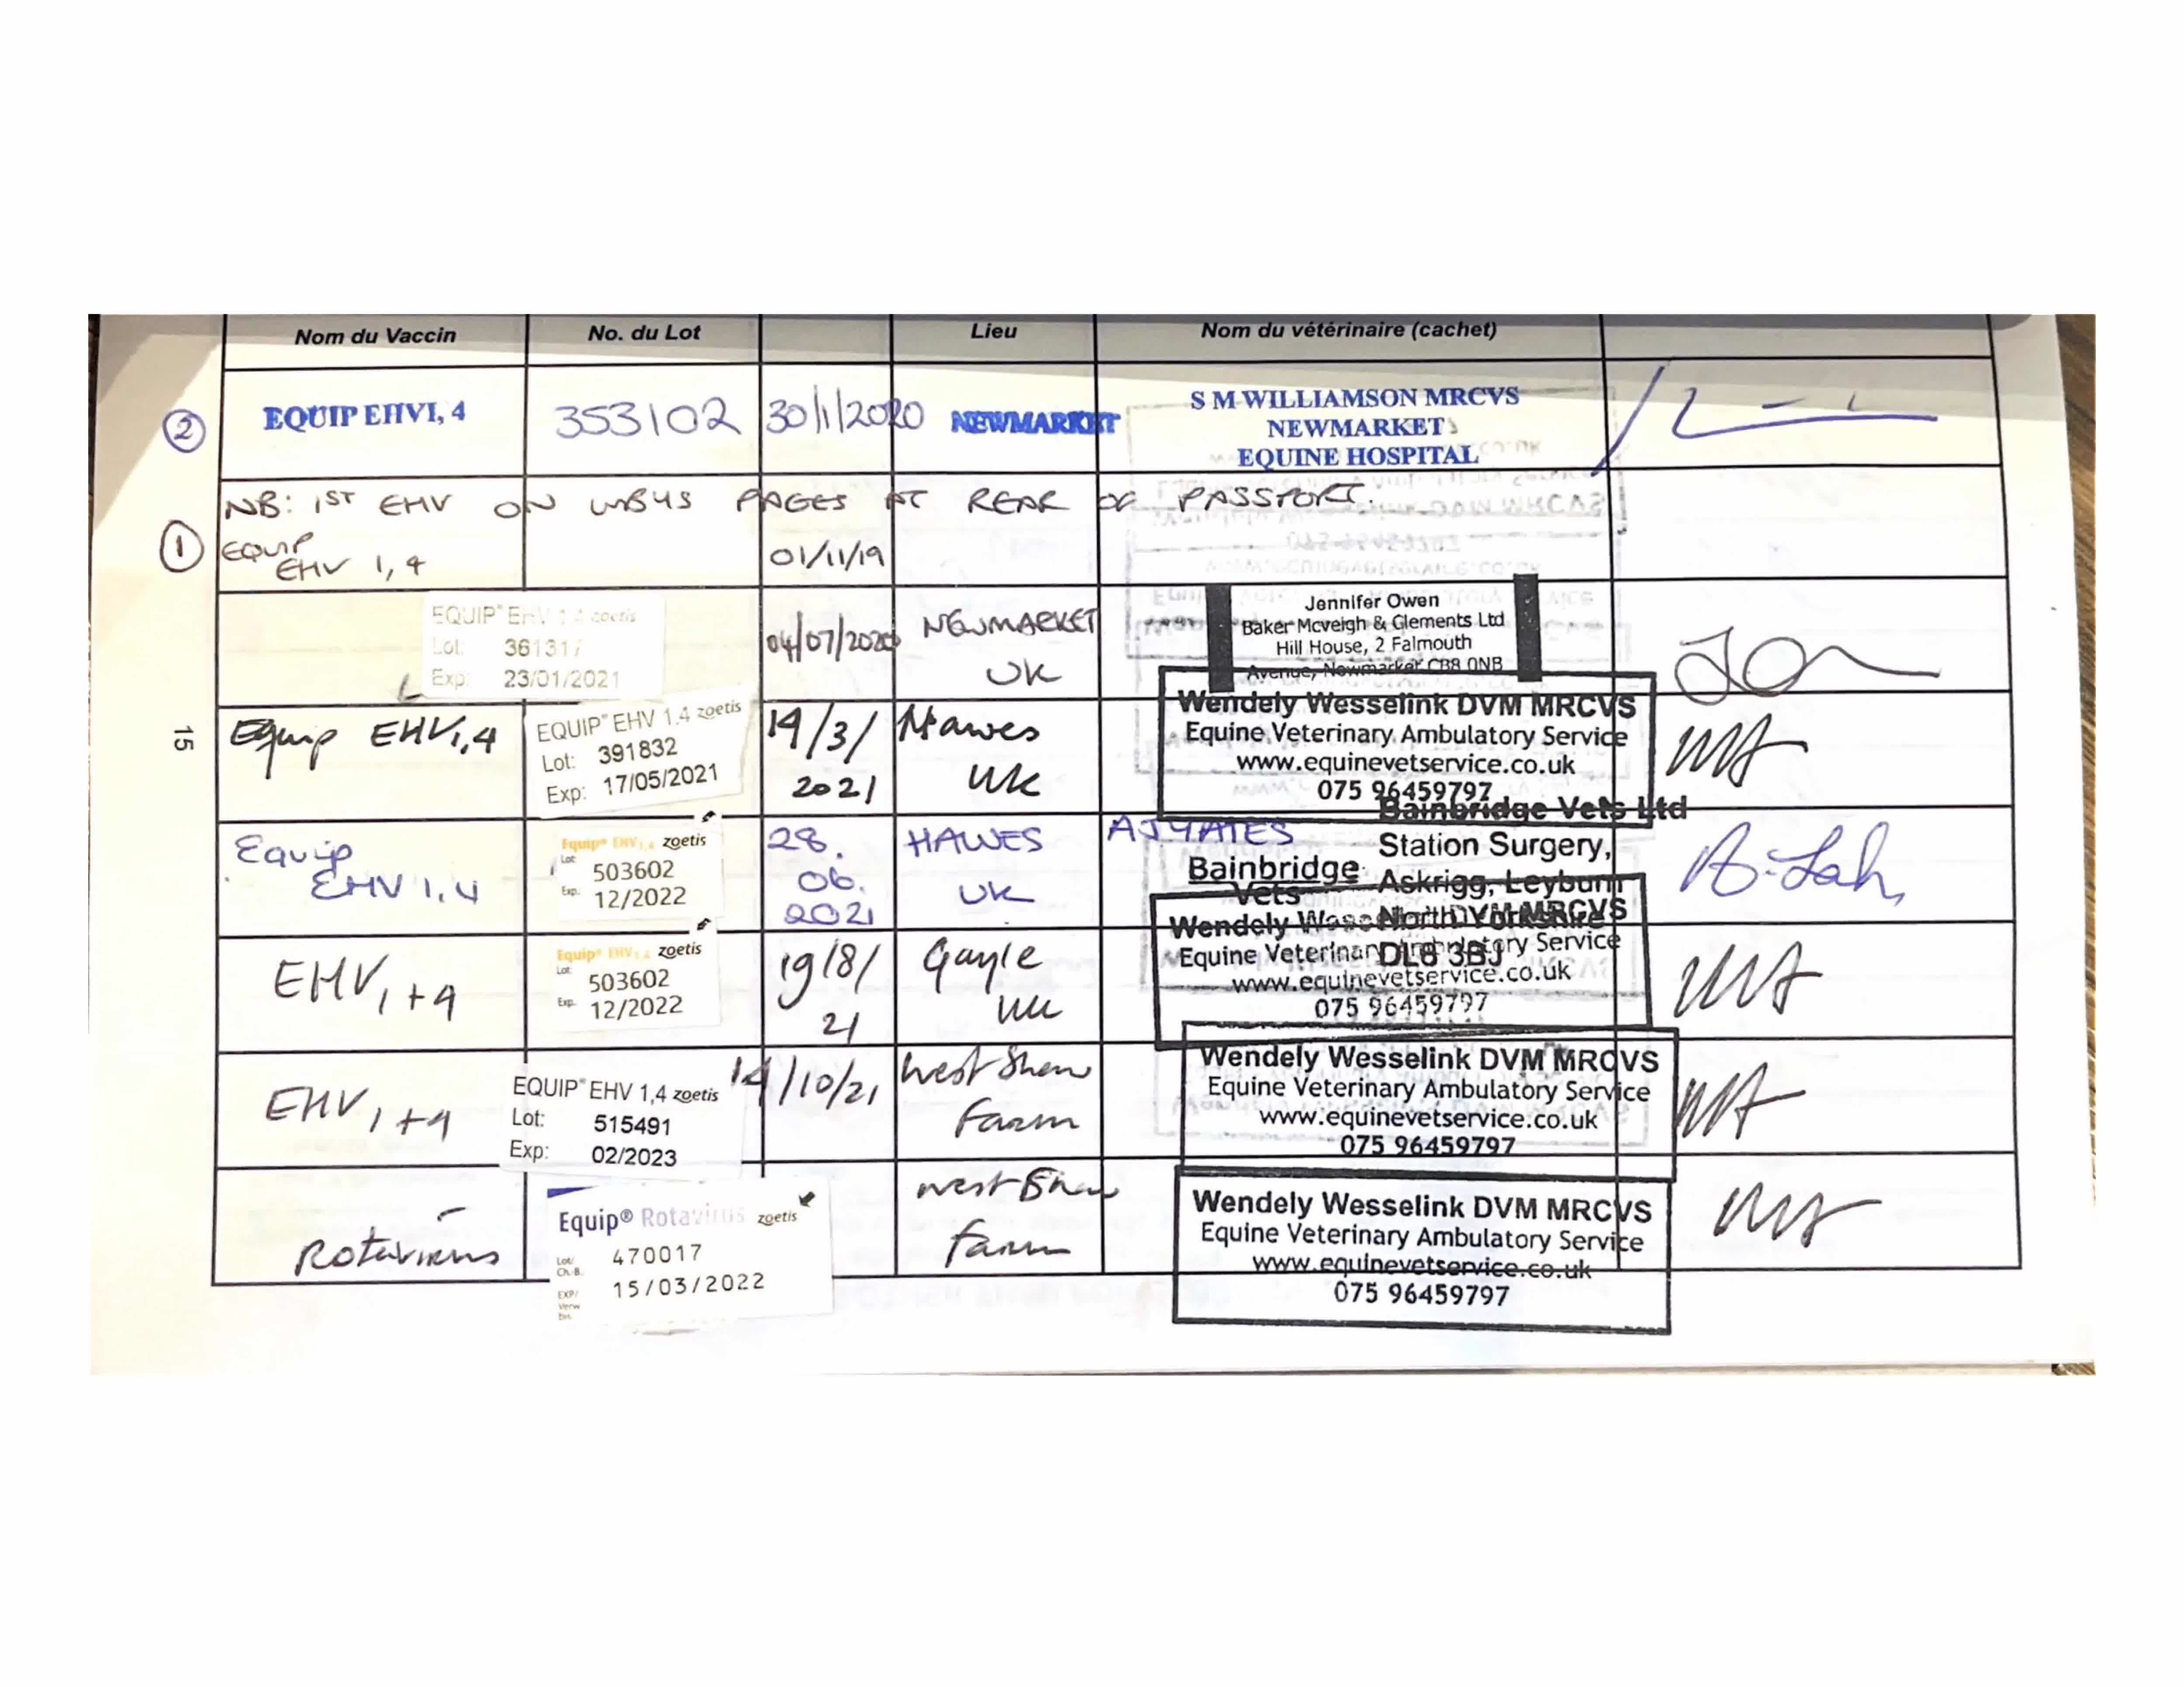 Nom du Vaccin No. du Lot Lieu Nom du vétérinaire (cachet)
2 EQUIP EHV1, 4 353102 30/1/2020 NEWMARKET S M WILLIAMSON MRCVS
NEWMARKET
EQUINE HOSPITAL
NB: 1ST EHV ON PAGES AT REAR OF PASSPORT.
1 EQUIP
EHV 1,4 01/11/19
EQUIP® EHV 1,4 zoetis
Lot: 361317
Exp: 23/01/2021
04/07/2020 NEWMARKET
UK
Jennifer Owen
Baker Mcveigh & Clements Ltd
Hill House, 2 Falmouth
Avenue, Newmarket CB8 0NB
15
Equip EHV1,4
EQUIP® EHV 1,4 zoetis
Lot: 391832
Exp: 17/05/2021
19/3/
2021
Hawes
UK
Wendely Wesselink DVM MRCVS
Equine Veterinary Ambulatory Service
www.equinevetservice.co.uk
075 96459797
Equip
EHV 1,4
Equip® EHV 1,4 zoetis
Lot: 503602
Exp. 12/2022
28.
06.
2021
HAWES
UK
AJ YATES
Bainbridge
Vets
Bainbridge Vets Ltd
Station Surgery,
Askrigg, Leyburn
North Yorkshire
DL8 3BJ
EHV1+4
Equip® EHV 1,4 zoetis
Lot: 503602
Exp. 12/2022
19/8/
21
Gayle
UK
Wendely Wesselink DVM MRCVS
Equine Veterinary Ambulatory Service
www.equinevetservice.co.uk
075 96459797
EHV1+4
EQUIP® EHV 1,4 zoetis
Lot: 515491
Exp: 02/2023
14/10/21
West Shaw
Farm
Wendely Wesselink DVM MRCVS
Equine Veterinary Ambulatory Service
www.equinevetservice.co.uk
075 96459797
Rotavirus
Equip® Rotavirus zoetis
Lot/
Ch.-B. 470017
EXP/
Verw
bis 15/03/2022
West Shaw
Farm
Wendely Wesselink DVM MRCVS
Equine Veterinary Ambulatory Service
www.equinevetservice.co.uk
075 96459797